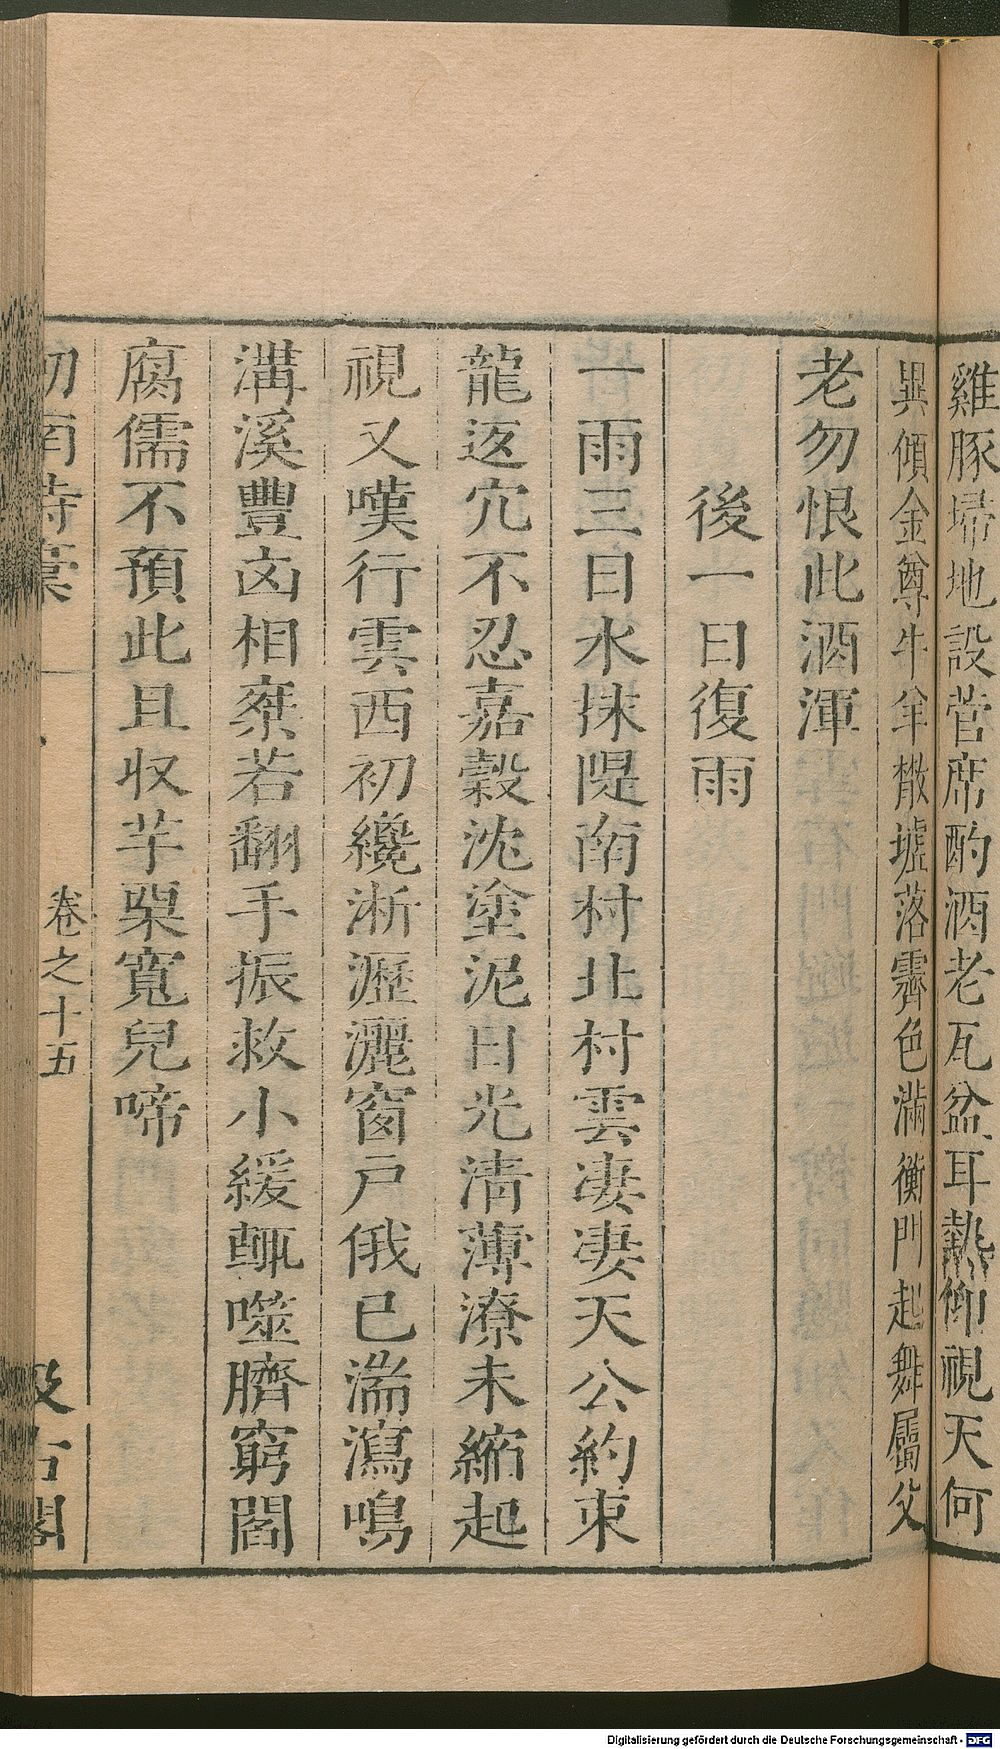 雞豚埽地設菅席酌酒老瓦盆耳熱仰視天何
異傾金尊牛羊散墟落霽色滿衡門起舞屬父
老勿恨此酒渾
後一日復雨
一雨三日水抹隄南村北村雲淒淒天公約束
龍返穴不忍嘉穀沈塗泥日光淸薄潦未縮起
視又嘆行雲西初纔淅瀝灑窗戶俄已濡瀉鳴
溝溪豐凶相椉若翻手振救小緩輒噬臍窮閻
腐儒不預此且收芋栗寬兒啼
劒南詩稾
卷之十五
汲古閣
Digitalisierung gefördert durch die Deutsche Forschungsgemeinschaft - DFG